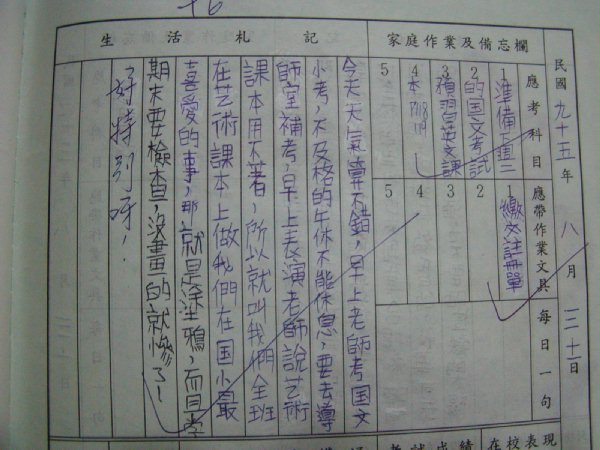 民國九十五年 八月 三十一日
家庭作業及備忘欄
應考科目
1 準備下週二
2 的国文考試
3 預習英文課
4 本 P118 119
5
應帶作業文具
1 繳交註冊單
2
3
4
5
每日一句
生活札記
今天天氣真不錯，早上老師考国文
小考，不及格的午休不能休息，要去導
師室補考，早上表演老師說艺術
課本用不著，所以就叫我們全班
在艺術課本上做我們在国小最
喜愛的事，那就是涂鴉，而且学
期末要檢查，沒畫的就慘了！
好特別呀！
考試成績
在校表現